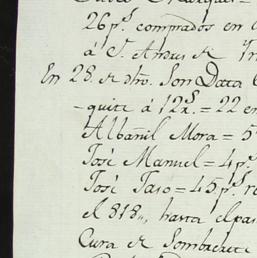 26 p.s comprados en
á S.n Andres de
En 28. de dho. Son Data
-quite á 12 r.s = 22 en
Albañil Mora = 5
José Manuel = 4 p.s
José Taso = 45 p.s
el 818,, hasta el pas
Cura de Sombrerete